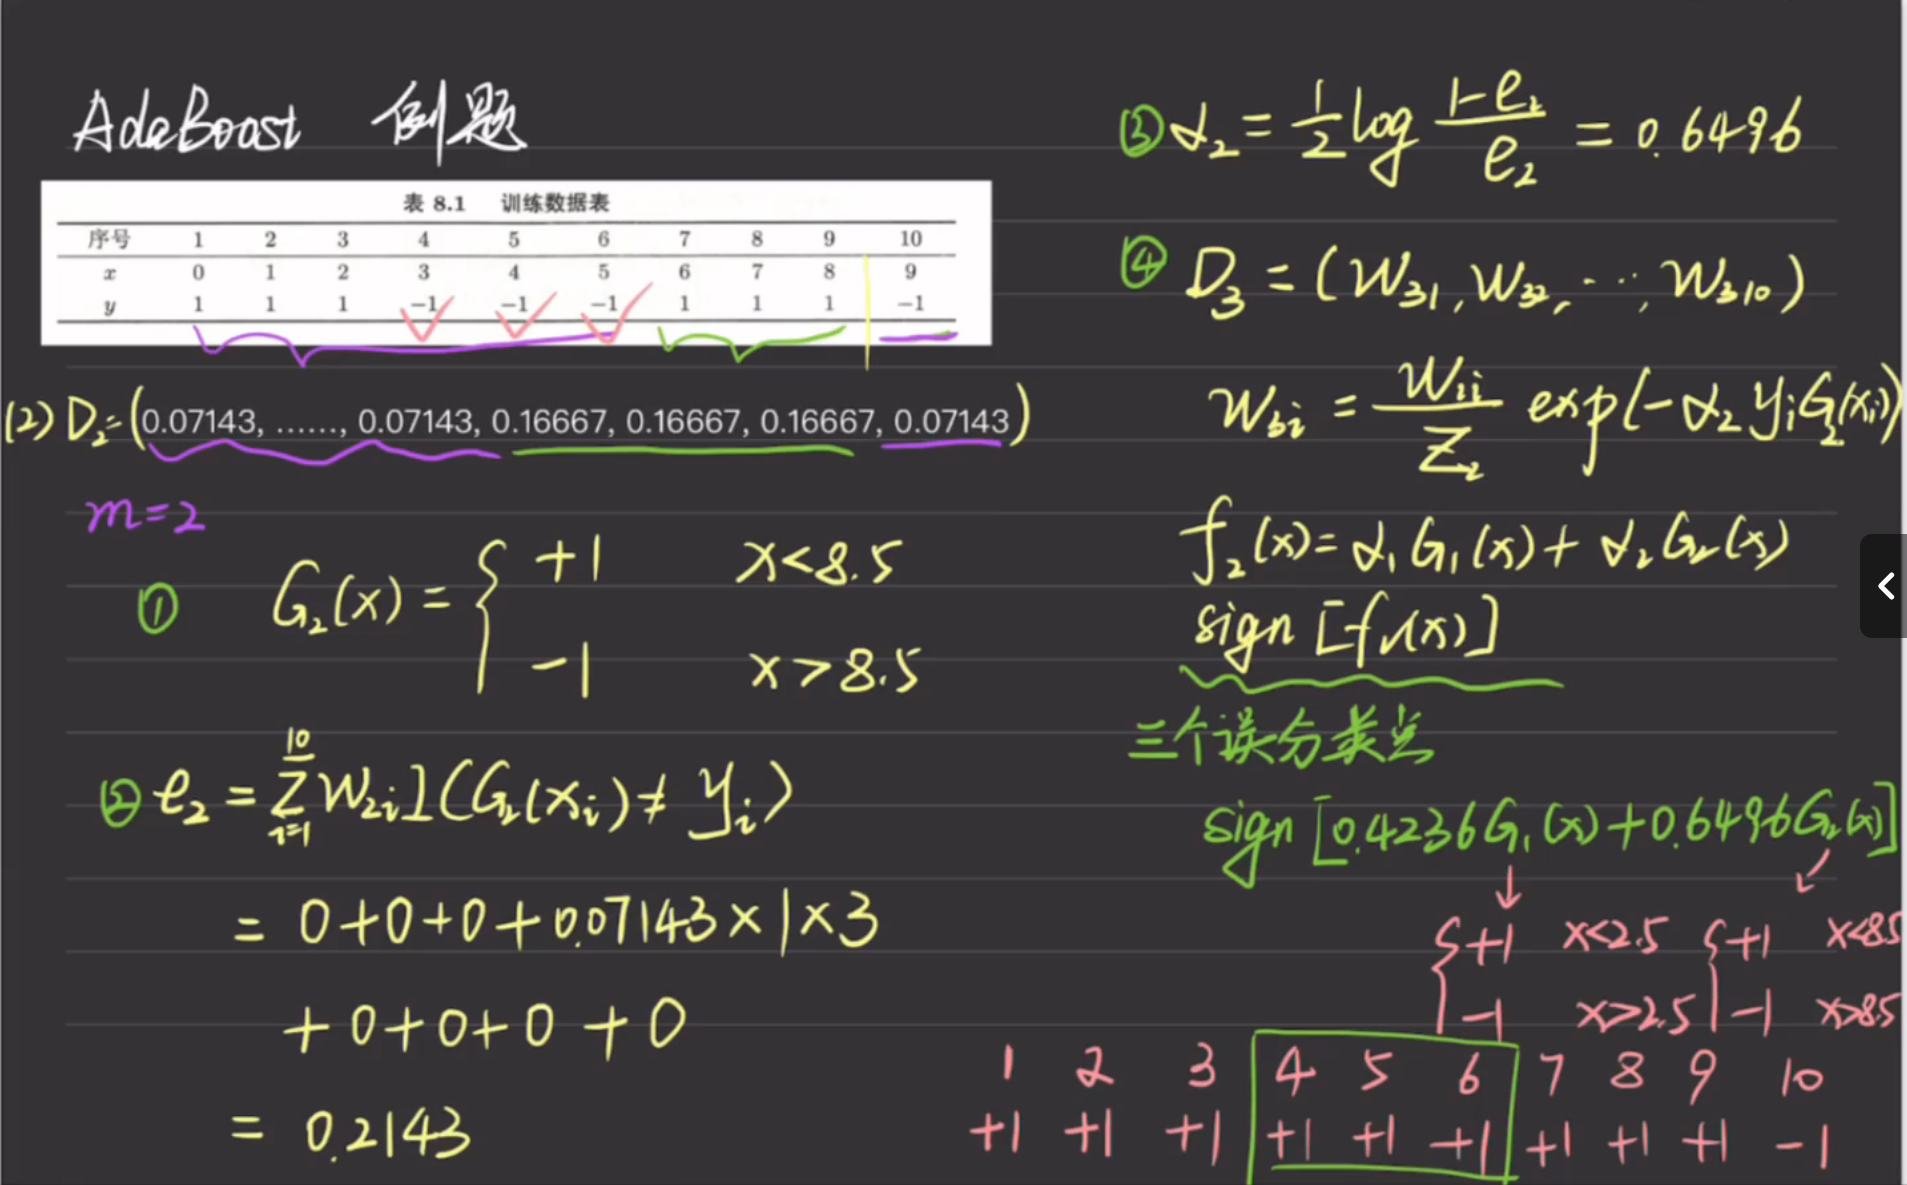 AdaBoost 例题
表 8.1 训练数据表
序号 1 2 3 4 5 6 7 8 9 10
x 0 1 2 3 4 5 6 7 8 9
y 1 1 1 −1 −1 −1 1 1 1 −1
(2) D₂=(0.07143, ……, 0.07143, 0.16667, 0.16667, 0.16667, 0.07143)
m=2
① G₂(x) = { +1 x<8.5
−1 x>8.5
② e₂ = Σ_{i=1}^{10} W₂ᵢ I(G₂(xᵢ) ≠ yᵢ)
= 0+0+0+0.07143×1×3
+0+0+0+0
= 0.2143
③ α₂ = 1/2 log (1−e₂)/e₂ = 0.6496
④ D₃ = (W₃₁, W₃₂, ⋯, W₃₁₀)
W₃ᵢ = W₂ᵢ/Z₂ exp(−α₂ yᵢ G₂(xᵢ))
f₂(x) = α₁G₁(x) + α₂G₂(x)
sign [f₂(x)]
三个误分类点
sign [0.4236G₁(x)+0.6496G₂(x)]
{ +1 x<2.5 { +1 x<8.5
−1 x>2.5 −1 x>8.5
1 2 3 4 5 6 7 8 9 10
+1 +1 +1 +1 +1 +1 +1 +1 +1 −1